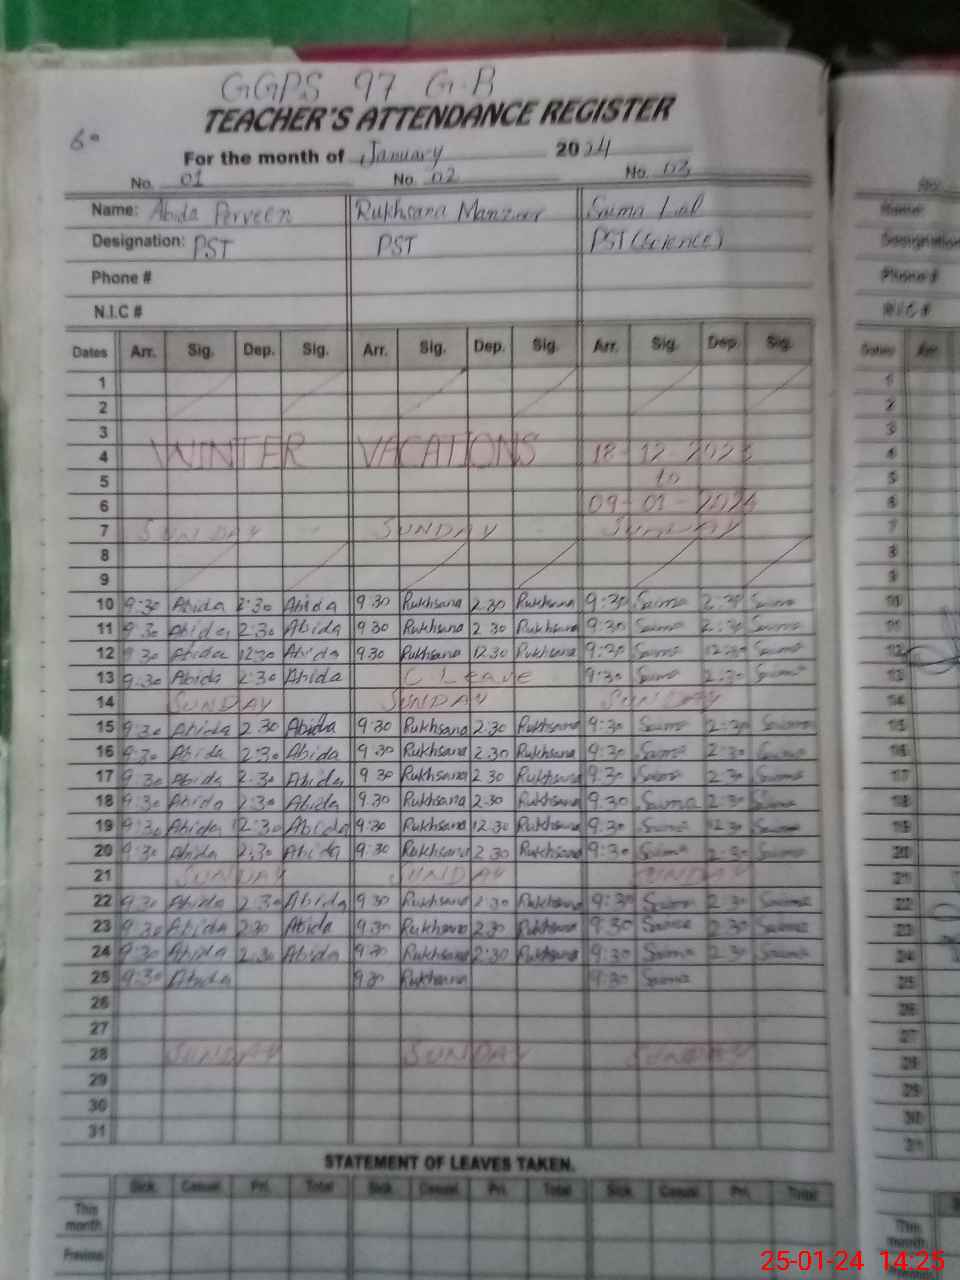 GGPS 97 G.B
TEACHER'S ATTENDANCE REGISTER
For the month of January 2024
No. 01 No. 02 No. 03
Name: Abida Perveen Rukhsana Manzoor Saima Lal
Designation: PST PST PST (Science)
Phone #
N.I.C #
Dates Arr. Sig. Dep. Sig. Arr. Sig. Dep. Sig. Arr. Sig. Dep. Sig.
1
2
3
4 WINTER VACATIONS 18-12-2023
5 to
6 09-01-2024
7 SUNDAY SUNDAY SUNDAY
8
9
10 9:30 Abida 2:30 Abida 9:30 Rukhsana 2:30 Rukhsana 9:30 Saima 2:30 Saima
11 9:30 Abida 2:30 Abida 9:30 Rukhsana 2:30 Rukhsana 9:30 Saima 2:30 Saima
12 9:30 Abida 12:30 Abida 9:30 Rukhsana 12:30 Rukhsana 9:30 Saima 12:30 Saima
13 9:30 Abida 2:30 Abida C Leave 9:30 Saima 2:30 Saima
14 SUNDAY SUNDAY SUNDAY
15 9:30 Abida 2:30 Abida 9:30 Rukhsana 2:30 Rukhsana 9:30 Saima 2:30 Saima
16 9:30 Abida 2:30 Abida 9:30 Rukhsana 2:30 Rukhsana 9:30 Saima 2:30 Saima
17 9:30 Abida 2:30 Abida 9:30 Rukhsana 2:30 Rukhsana 9:30 Saima 2:30 Saima
18 9:30 Abida 2:30 Abida 9:30 Rukhsana 2:30 Rukhsana 9:30 Saima 2:30 Saima
19 9:30 Abida 12:30 Abida 9:30 Rukhsana 12:30 Rukhsana 9:30 Saima 12:30 Saima
20 9:30 Abida 2:30 Abida 9:30 Rukhsana 2:30 Rukhsana 9:30 Saima 2:30 Saima
21 SUNDAY SUNDAY SUNDAY
22 9:30 Abida 2:30 Abida 9:30 Rukhsana 2:30 Rukhsana 9:30 Saima 2:30 Saima
23 9:30 Abida 2:30 Abida 9:30 Rukhsana 2:30 Rukhsana 9:30 Saima 2:30 Saima
24 9:30 Abida 2:30 Abida 9:30 Rukhsana 2:30 Rukhsana 9:30 Saima 2:30 Saima
25 9:30 Abida 9:30 Rukhsana 9:30 Saima
26
27
28 SUNDAY SUNDAY SUNDAY
29
30
31
STATEMENT OF LEAVES TAKEN.
Sick. Casual. Pri. Total Sick. Casual. Pri. Total Sick. Casual. Pri. Total
This
month
25-01-24 14:25